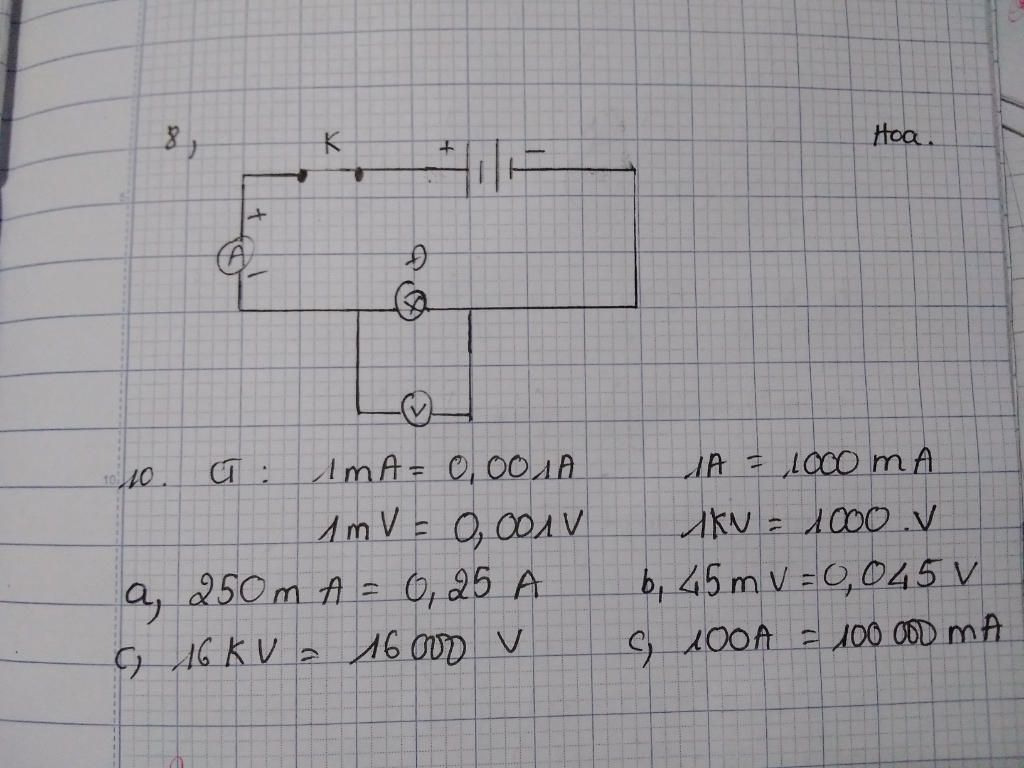 8, K + - Hoa.
+
A
-
Đ
V
10. CT : 1mA = 0,001A 1A = 1000 mA
1mV = 0,001V 1KV = 1000.V
a, 250mA = 0,25 A b, 45mV = 0,045 V
c, 16KV = 16000 V c, 100A = 100 000 mA